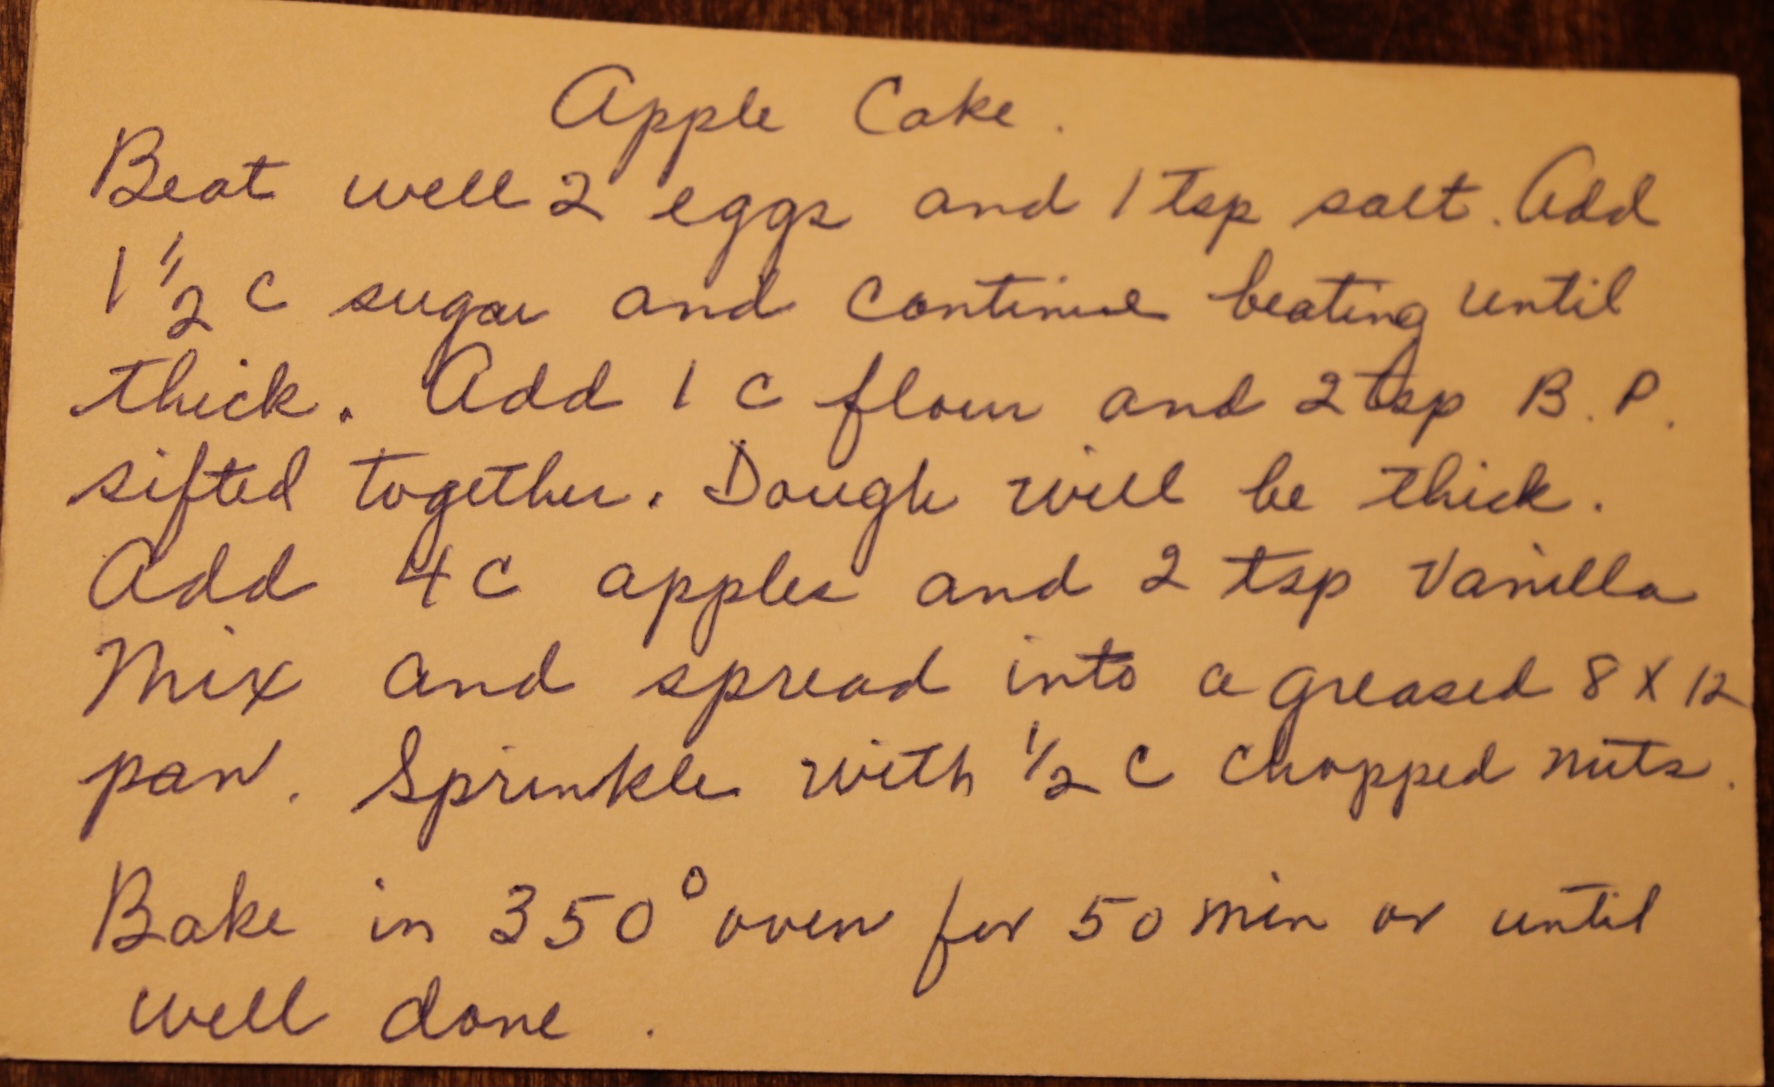 Apple Cake.
Beat well 2 eggs and 1 tsp salt. Add
1 1/2 c sugar and continue beating until
thick. Add 1 c flour and 2 tsp B. P.
sifted together. Dough will be thick.
Add 4 c apples and 2 tsp Vanilla
Mix and spread into a greased 8 X 12
pan. Sprinkle with 1/2 c chopped nuts.
Bake in 350° oven for 50 min or until
well done.